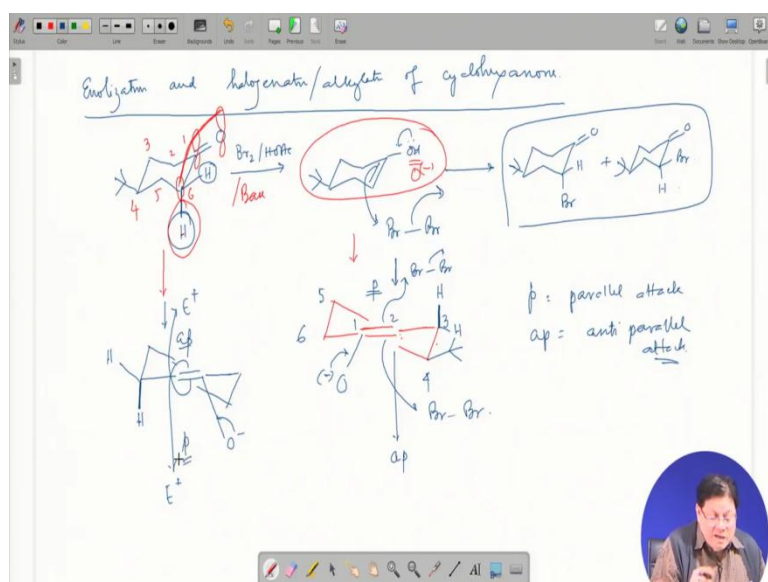 Stylus
Color
Line
Eraser
Backgrounds
Undo
Redo
Pages
Previous
Next
Erase
Board
Web
Documents
Show Desktop
OpenBoard
Enolization and halogenation/alkylation of cyclohexanone.
3 2 1 O
4 5 6 H
H
Br2/HOAc
/Base
ÖH
O(-)
Br — Br
O
H
Br
+
O
Br
H
E+
ap
H
H
O-
p
E+
Br - Br
p
5
6 1 2 3 H
H
4
(-) O
Br - Br.
ap
p = parallel attack
ap = anti parallel
attack
AI